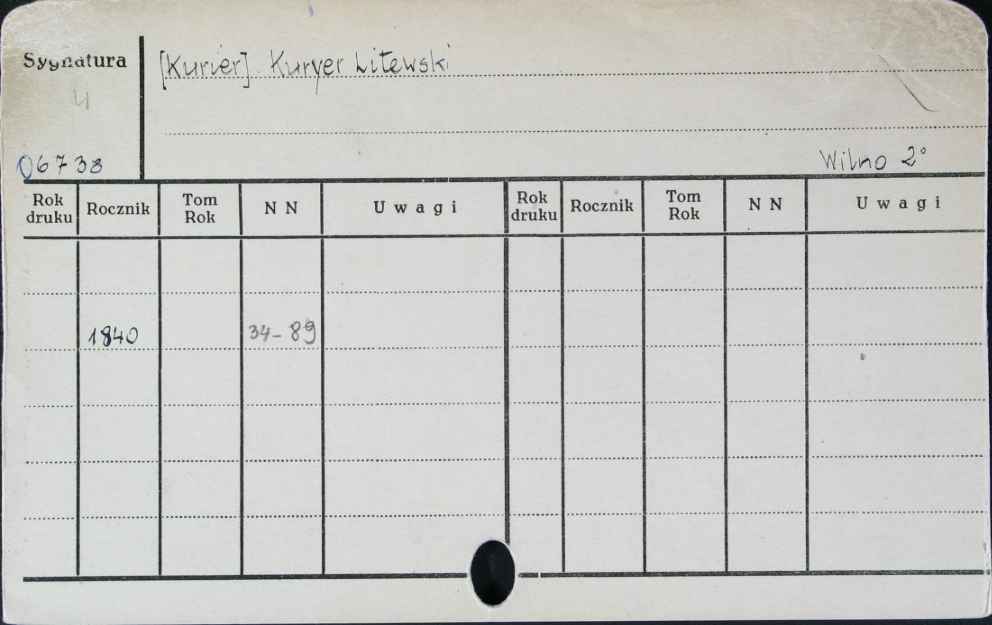 Sygnatura
[Kurier] Kuryer Litewski
4
06738
Wilno 2°
Rok druku Rocznik Tom Rok N N Uwagi Rok druku Rocznik Tom Rok N N Uwagi
1840 34-89